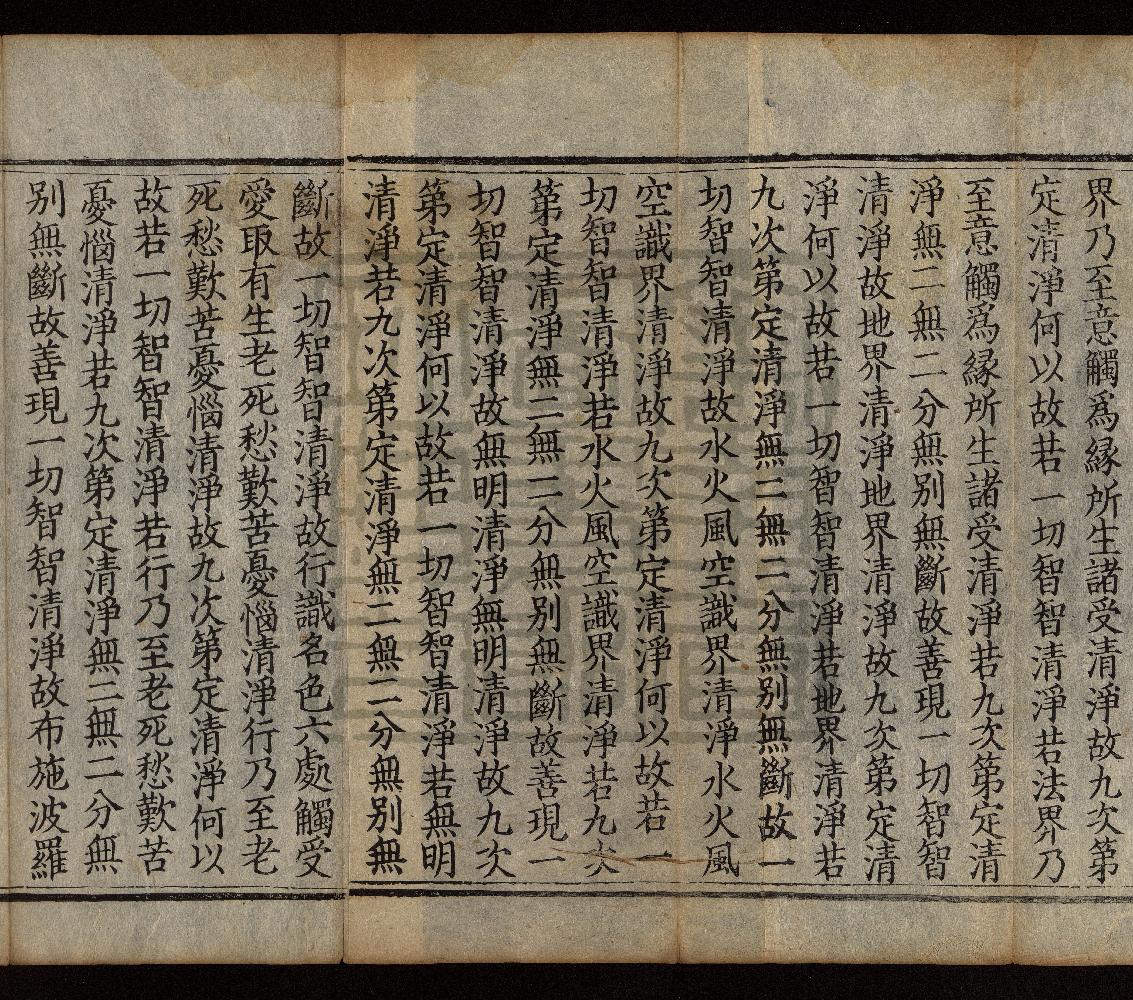 界乃至意觸爲緣所生諸受清淨故九次第
定清淨何以故若一切智智清淨若法界乃
至意觸爲緣所生諸受清淨若九次第定清
淨無二無二分無別無斷故善現一切智智
清淨故地界清淨地界清淨故九次第定清
淨何以故若一切智智清淨若地界清淨若
九次第定清淨無二無二分無別無斷故一
切智智清淨故水火風空識界清淨水火風
空識界清淨故九次第定清淨何以故若一
切智智清淨若水火風空識界清淨若九次
第定清淨無二無二分無別無斷故善現一
切智智清淨故無明清淨無明清淨故九次
第定清淨何以故若一切智智清淨若無明
清淨若九次第定清淨無二無二分無別無
斷故一切智智清淨故行識名色六處觸受
愛取有生老死愁歎苦憂惱清淨行乃至老
死愁歎苦憂惱清淨故九次第定清淨何以
故若一切智智清淨若行乃至老死愁歎苦
憂惱清淨若九次第定清淨無二無二分無
別無斷故善現一切智智清淨故布施波羅